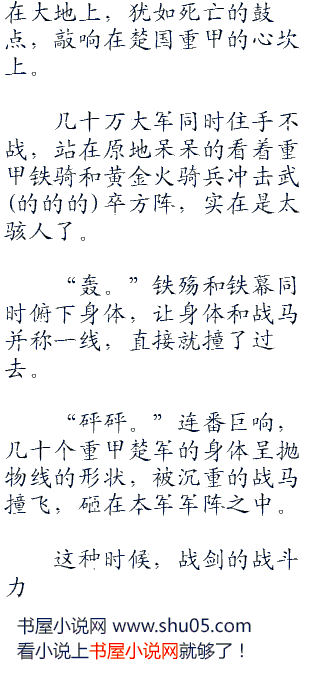 在大地上，犹如死亡的鼓
点，敲响在楚国重甲的心坎
上。
几十万大军同时住手不
战，站在原地呆呆的看着重
甲铁骑和黄金火骑兵冲击武
(的的的)卒方阵，实在是太
骇人了。
“轰。”铁殇和铁幕同
时俯下身体，让身体和战马
并称一线，直接就撞了过
去。
“砰砰。”连番巨响，
几十个重甲楚军的身体呈抛
物线的形状，被沉重的战马
撞飞，砸在本军军阵之中。
这种时候，战剑的战斗
力
书屋小说网 www.shu05.com
看小说上书屋小说网就够了！